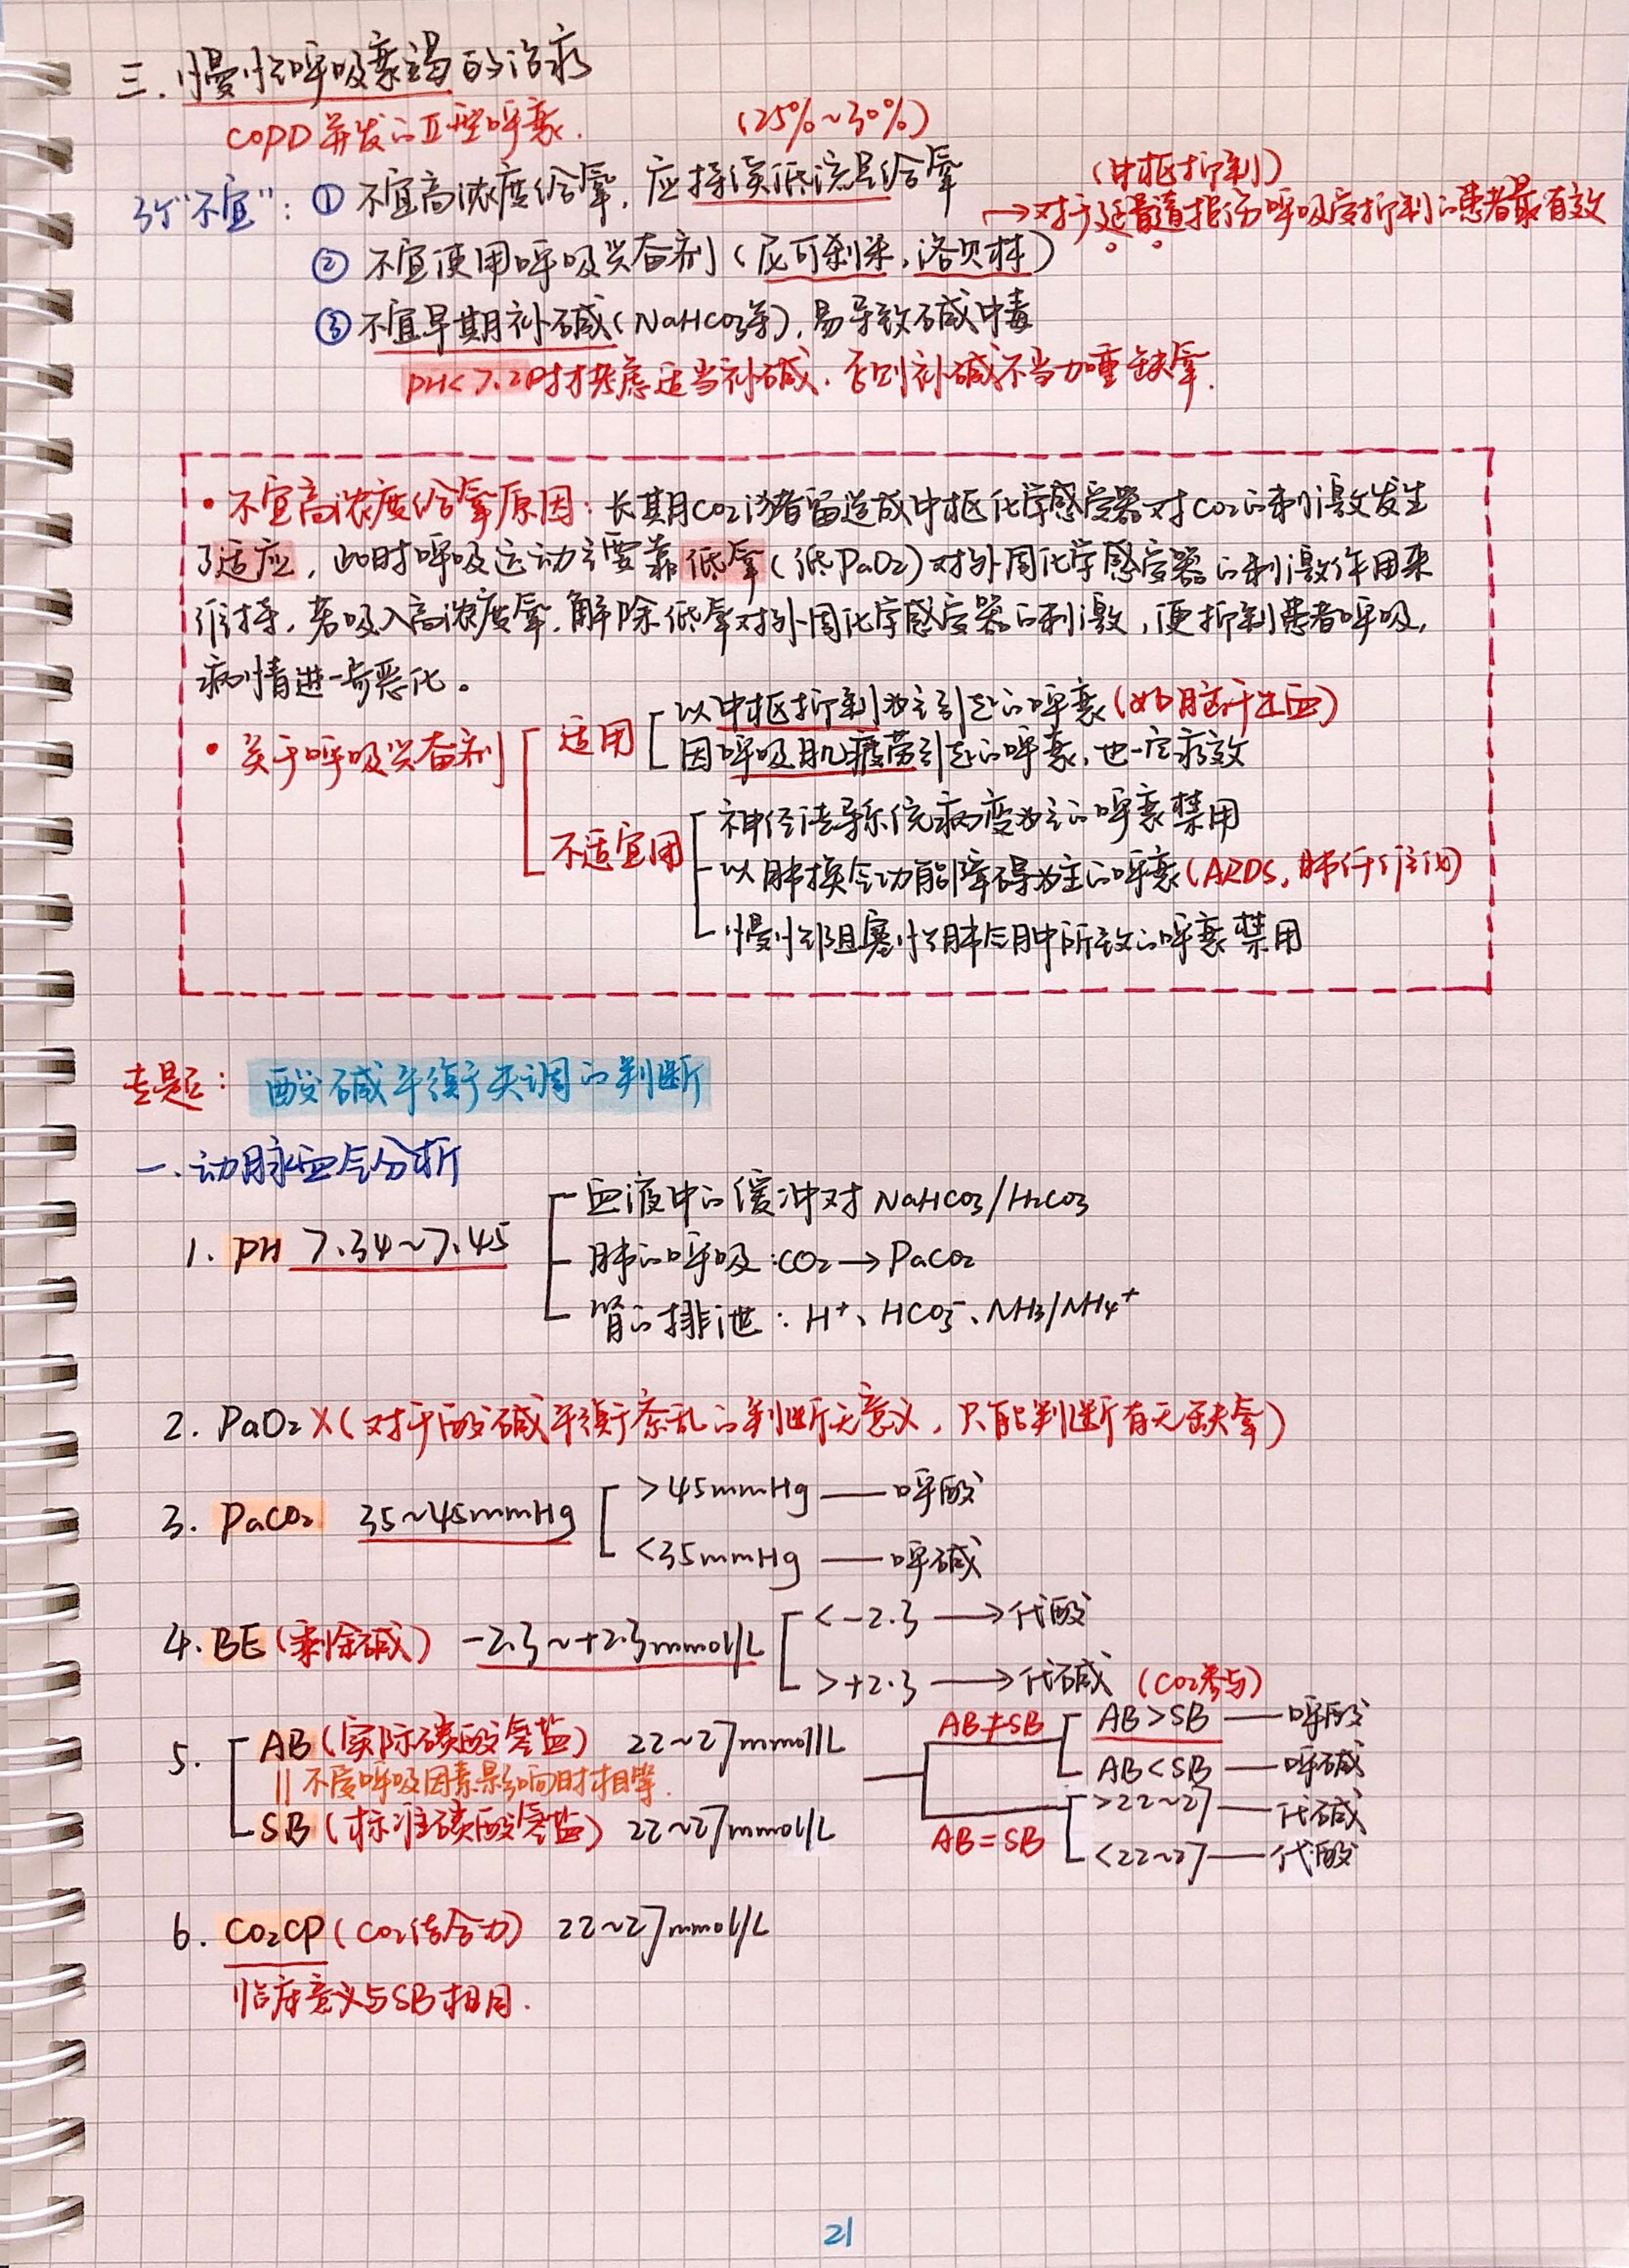 三.慢性呼吸衰竭的治疗
COPD并发的Ⅱ型呼衰.
(25%~30%)
3个"不宜":①不宜高浓度给氧,应持续低流量给氧
(中枢抑制)
→对于延髓直接伤呼吸受抑制的患者最有效
②不宜使用呼吸兴奋剂(尼可刹米,洛贝林)
③不宜早期补碱(NaHCO3等),易导致碱中毒
PH<7.20时才考虑适当补碱.否则补碱不当加重缺氧.
•不宜高浓度给氧原因:长期CO2潴留造成中枢化学感受器对CO2的刺激发生
了适应,此时呼吸运动主要靠低氧(低PaO2)对外周化学感受器的刺激作用来
维持,若吸入高浓度氧,解除低氧对外周化学感受器的刺激,便抑制患者呼吸,
病情进一步恶化。
•关于呼吸兴奋剂
适用
以中枢抑制为主引起的呼衰(如脑干出血)
因呼吸肌疲劳引起的呼衰,也一定疗效
不适宜用
神经传导系统病变为主的呼衰禁用
以肺换气功能障碍为主的呼衰(ARDS,肺纤维化)
慢性阻塞性肺气肿所致的呼衰禁用
专题:酸碱平衡失调的判断
一.动脉血气分析
1.PH 7.34~7.45
血液中的缓冲对NaHCO3/H2CO3
肺的呼吸:CO2→PaCO2
肾的排泄:H+、HCO3-、NH3/NH4+
2.PaO2X(对于酸碱平衡紊乱的判断无意义,只能判断有无缺氧)
3.PaCO2 35~45mmHg
>45mmHg——呼酸
<35mmHg——呼碱
4.BE(剩余碱) -2.3~+2.3mmol/L
<-2.3→代酸
>+2.3→代碱
(CO2参与)
5.AB(实际碳酸氢盐) 22~27mmol/L
||不受呼吸因素影响时相等.
SB(标准碳酸氢盐) 22~27mmol/L
AB≠SB
AB>SB——呼酸
AB<SB——呼碱
AB=SB
>22~27——代碱
<22~27——代酸
6.CO2CP(CO2结合力) 22~27mmol/L
临床意义与SB相同.
21